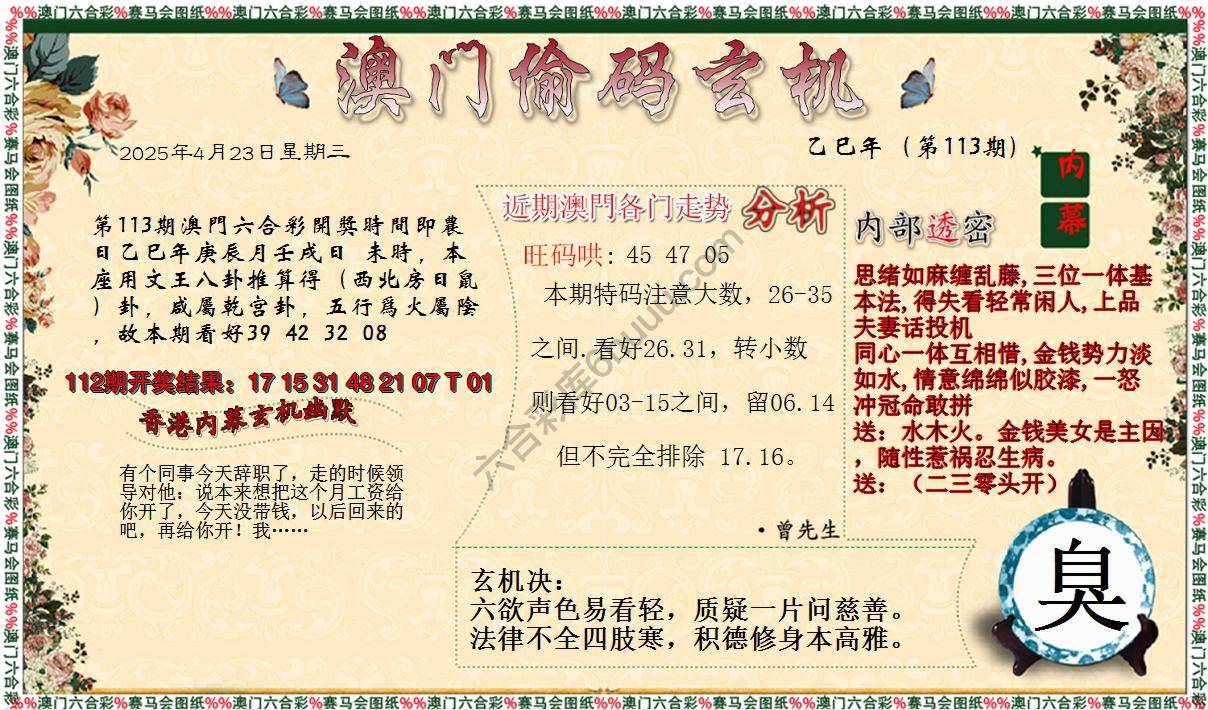 %%澳门六合彩%赛马会图纸%%澳门六合彩%赛马会图纸%%澳门六合彩%赛马会图纸%%澳门六合彩%赛马会图纸%%澳门六合彩%赛马会图纸%%澳门六合彩%赛马会图纸%%
澳门偷码玄机
2025年4月23日星期三
乙巳年（第113期）
内幕
第113期澳門六合彩開獎時間即農
日乙巳年庚辰月壬戌日 未時，本
座用文王八卦推算得（西北房日鼠
）卦，咸屬乾宫卦，五行爲火屬陰
，故本期看好39 42 32 08
112期开奖结果：17 15 31 48 21 07 T 01
香港内幕玄机幽默
有个同事今天辞职了，走的时候领
导对他：说本来想把这个月工资给
你开了，今天没带钱，以后回来的
吧，再给你开！我……
近期澳門各门走势 分析
旺码哄: 45 47 05
本期特码注意大数，26-35
之间.看好26.31，转小数
则看好03-15之间，留06.14
但不完全排除 17.16。
·曾先生
内部透密
思绪如麻缠乱藤,三位一体基
本法,得失看轻常闲人,上品
夫妻话投机
同心一体互相惜,金钱势力淡
如水,情意绵绵似胶漆,一怒
冲冠命敢拼
送：水木火。金钱美女是主因
，随性惹祸忍生病。
送：（二三零头开）
玄机决：
六欲声色易看轻，质疑一片问慈善。
法律不全四肢寒，积德修身本高雅。
臭
%%澳门六合彩%赛马会图纸%%澳门六合彩%赛马会图纸%%澳门六合彩%赛马会图纸%%澳门六合彩%赛马会图纸%%澳门六合彩%赛马会图纸%%澳门六合彩%赛马会图纸%%